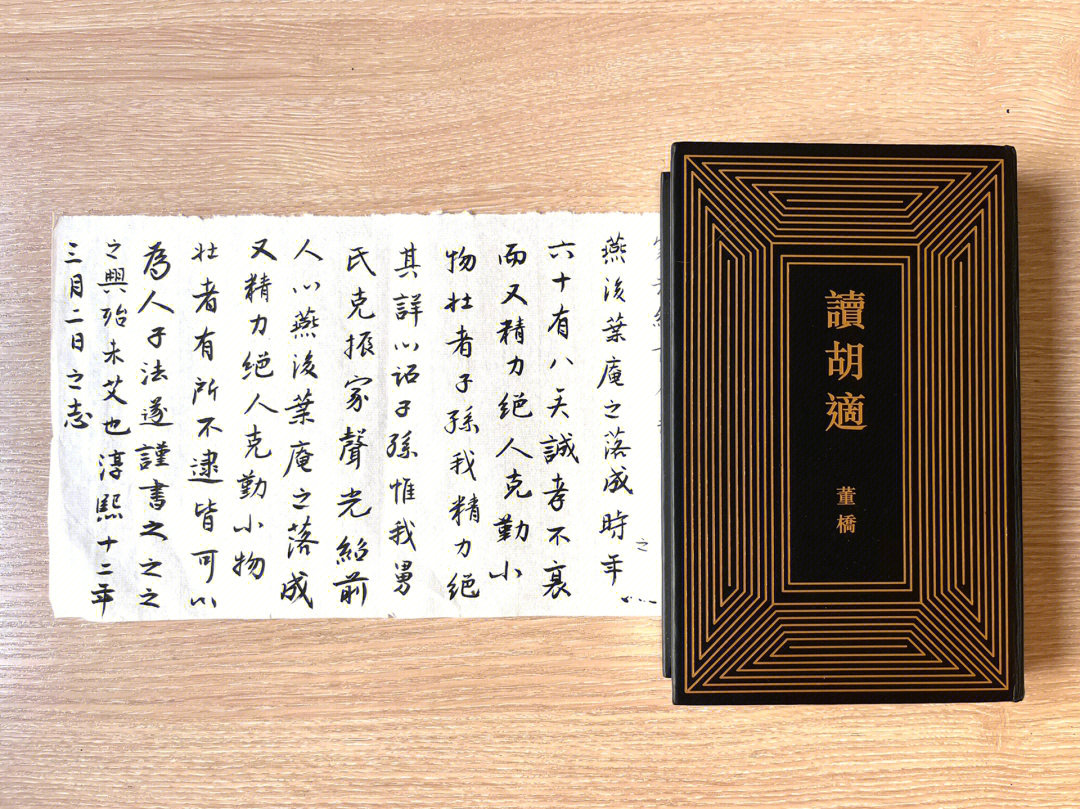 讀胡適
董橋
燕浚葉庵之落成時年
之
六十有八矣誠孝不衰
而又精力絕人克勤小
物壯者子孫我精力絕
其詳以詔子孫惟我舅
氏克振家聲光紹前
人以燕浚葉庵之落成
又精力絕人克勤小物
壯者有所不逮皆可以
為人子法遂謹書之之之
之興殆未艾也 淳熙十二年
三月二日之志